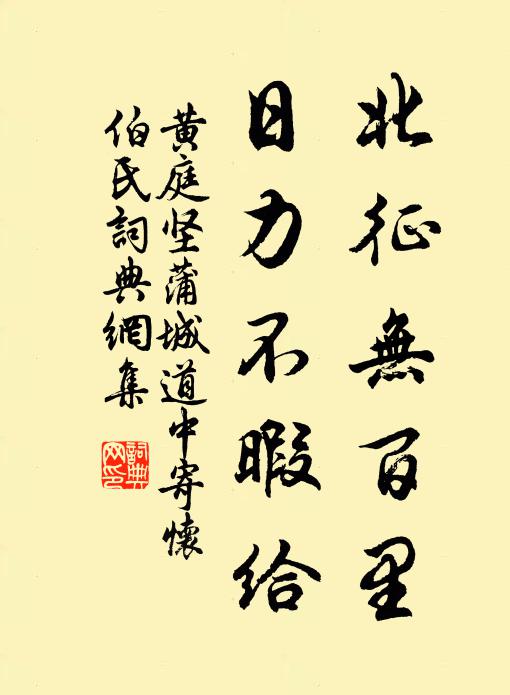 北征無百里
日力不暇給
黄庭坚蒲城道中寄懷
伯氏詞典網集
詞典
网印